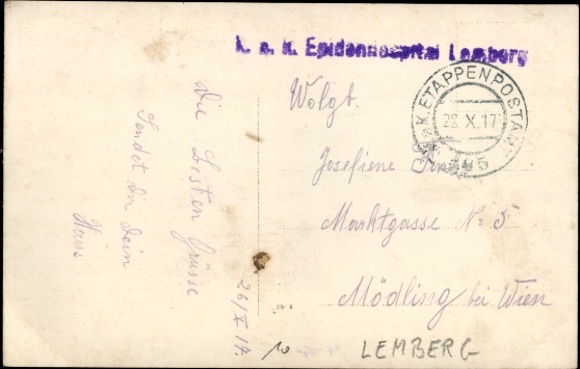 k. u. k. Epidemiespital Lemberg
K.u.K. ETAPPENPOSTAMT
28. X. 17
Wolgb.
Josefiene
Marktgasse № 5
Mödling bei Wien
Die besten Grüsse
Sendet Dir Dein
Hans
26/X 17.
10
LEMBERG